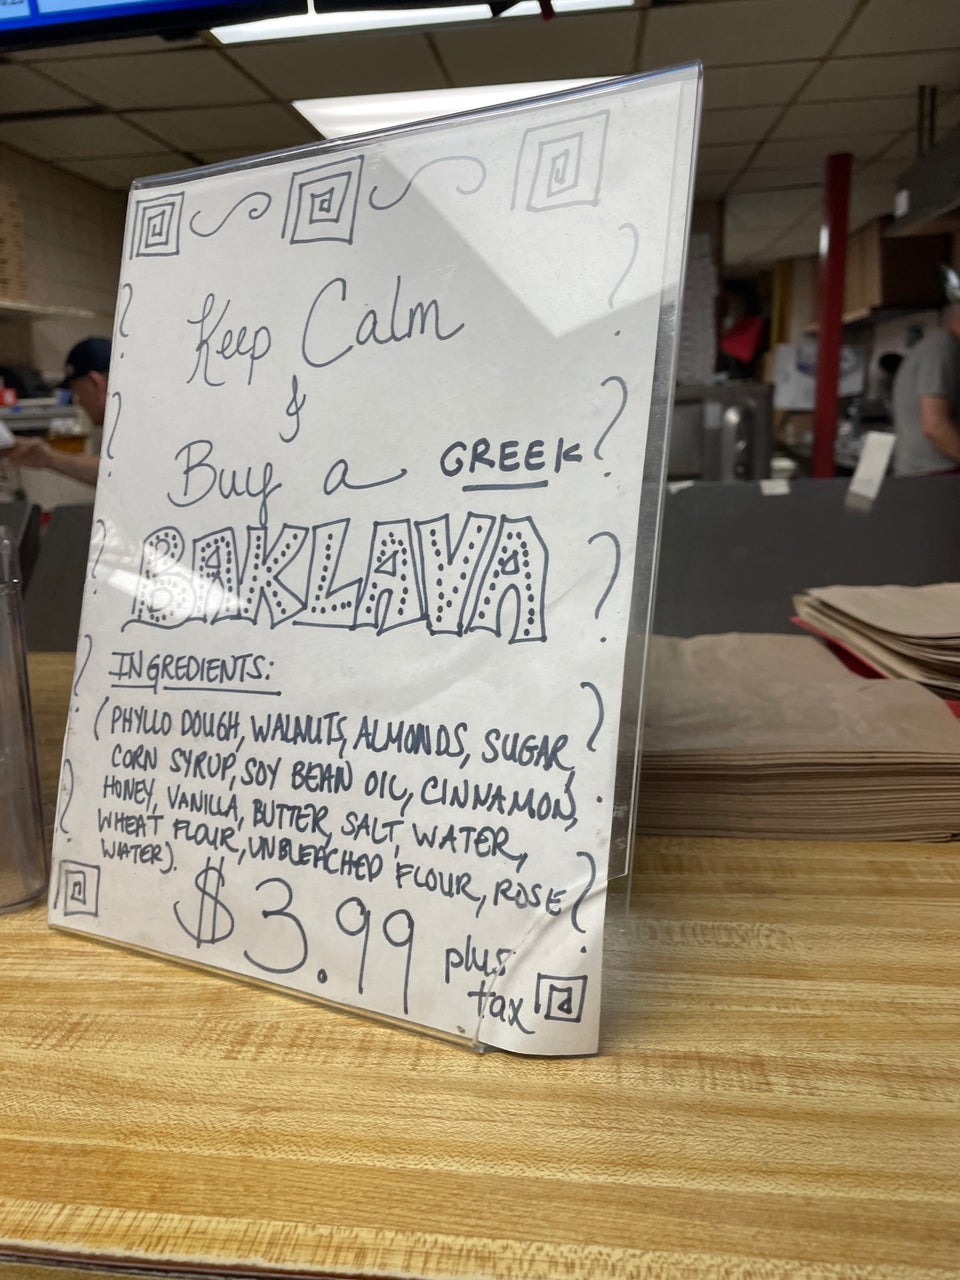 Keep Calm
&
Buy a GREEK
BAKLAVA
INGREDIENTS:
(PHYLLO DOUGH, WALNUTS, ALMONDS, SUGAR,
CORN SYRUP, SOY BEAN OIL, CINNAMON,
HONEY, VANILLA, BUTTER, SALT, WATER,
WHEAT FLOUR, UNBLEACHED FLOUR, ROSE
WATER).
$3.99 plus
tax